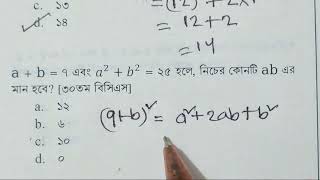 c. ১৩
d. ১৪
= 12 + 2
= 14
a + b = ৭ এবং a² + b² = ২৫ হলে, নিচের কোনটি ab এর
মান হবে? [৩০তম বিসিএস]
a. ১২
b. ৬
c. ১০
d. ০
(a+b)² = a²+2ab+b²